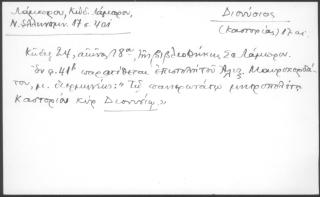 Λάμπρου, Κώδ. Λάμπρου,
Ν. Ελληνομν. 17 σ. 401
Διονύσιος
(Καστορίας) 17 αι.
Κῶδιξ 24, αἰῶνος 18ου, τῆς βιβλιοθήκης Σπ. Λάμπρου.
Ἐν φ. 41β παρατίθεται ἐπιστολὴ τοῦ Ἀλεξ. Μαυροκορδά-
του, : "Τῷ πανιερωτάτῳ μητροπολίτῃ
Καστορίας κὺρ Διονυσίῳ."